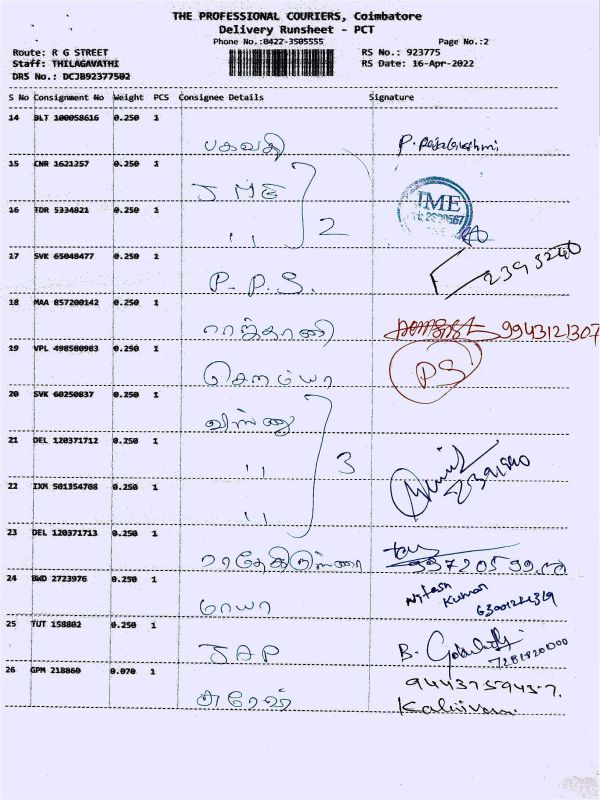 THE PROFESSIONAL COURIERS, Coimbatore
Delivery Runsheet - PCT
Phone No.:0422-3505555 Page No.:2
Route: R G STREET RS No.: 923775
Staff: THILAGAVATHI RS Date: 16-Apr-2022
DRS No.: DCJB92377502
S No Consignment No Weight PCS Consignee Details Signature
14 BLT 100058616 0.250 1
பகவதி
15 CNR 1621257 0.250 1
JME
16 TDR 5334821 0.250 1
,, 2
JME
17 SVK 65048477 0.250 2
P.P.S. 2395240
18 MAA 857200142 0.250 1
ராஜ்தானி 9943121307
19 VPL 498500983 0.250 1
சௌம்யா PS
20 SVK 60250837 0.250 1
விஸ்ணு
21 DEL 120371712 0.250 1
,, 3
22 IXM 501354708 0.250 1
,,
23 DEL 120371713 0.250 1
24 BWD 2723976 0.250 1
மாயா Nitesh Kumar
25 TUT 158802 0.250 1
JAP B.
26 GPM 218860 0.070 1
சுரேஷ் 9443759457.